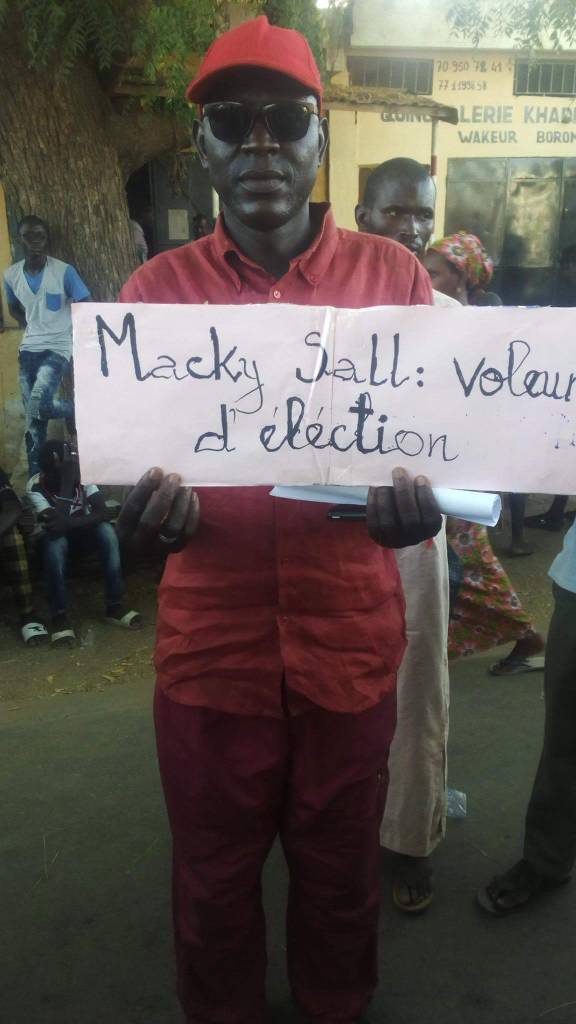 70 950 78 41
QUINCAILLERIE KHAD
WAKEUR BORO
Macky Sall: voleur
d'éléction